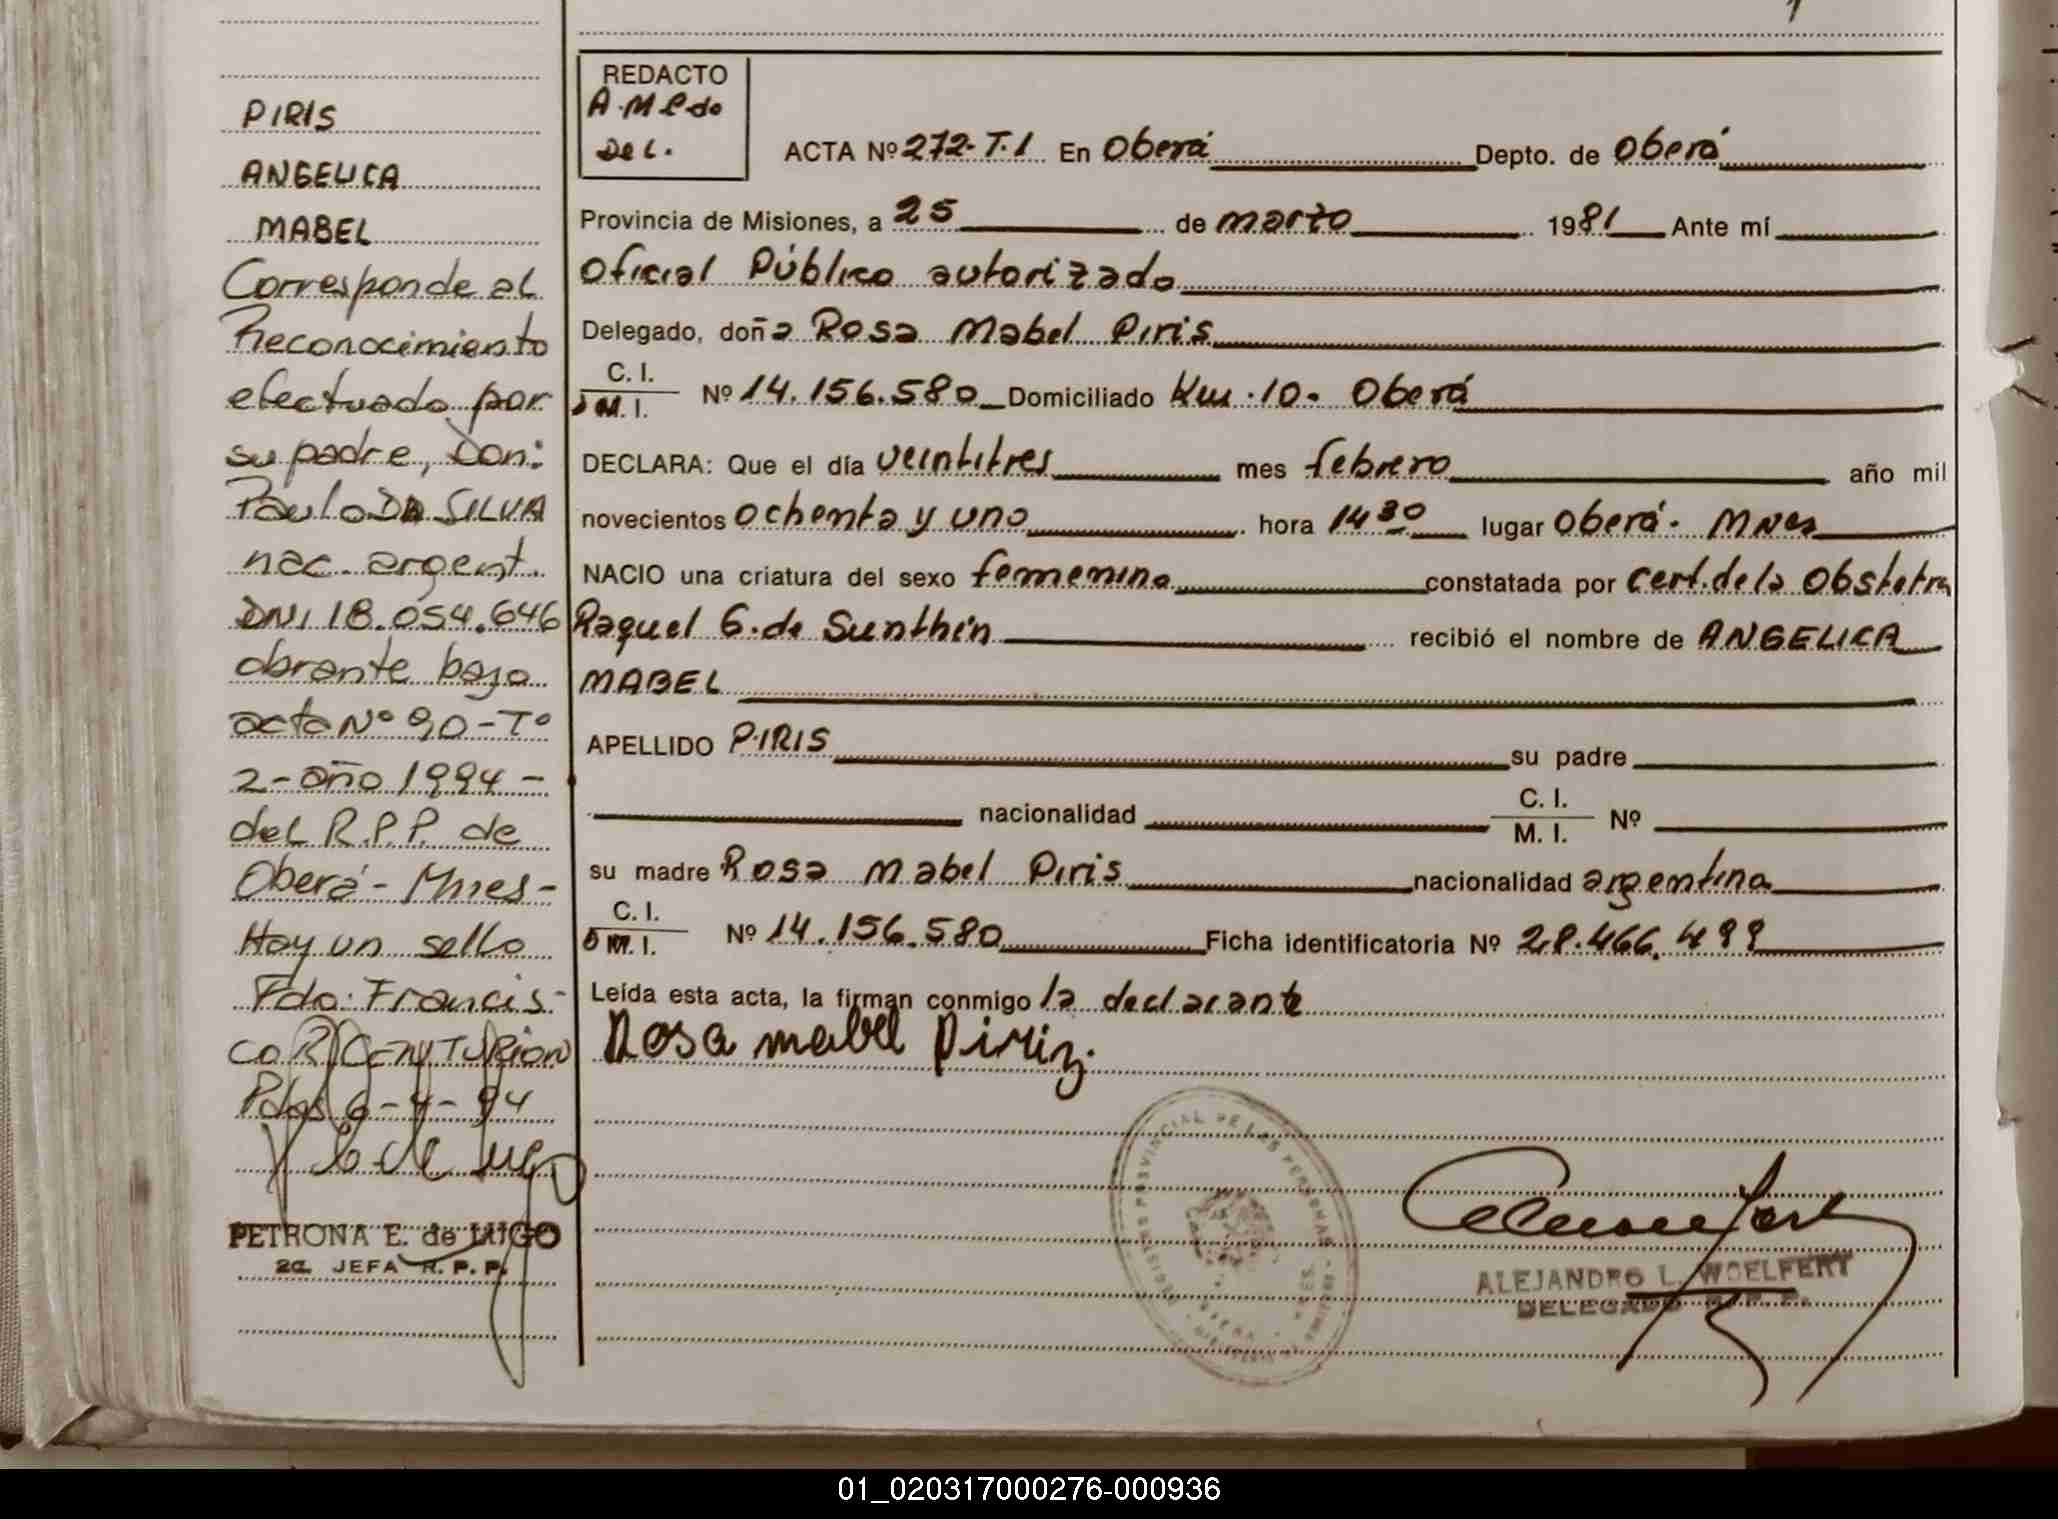 PIRIS
ANGELICA
MABEL
Corresponde al
Reconocimiento
efectuado por
su padre, Don:
Paulo DA SILVA
nac. argent.
DNI 18.054.646
obrante bajo
acta Nº 90-Tº
2-año 1994-
del R.P.P. de
Oberá-Mnes-
Hay un sello
Fdo: Francis-
co R CENTURION
Pdas 6-4-94
PETRONA E. de LUGO
2a. JEFA R. P. P.
REDACTO
A.M.P.do
Del.
ACTA Nº 272-T.1 En Oberá Depto. de Oberá
Provincia de Misiones, a 25 de marzo 1981 Ante mí
Oficial Público autorizado
Delegado, doña Rosa Mabel Piris
C. I.
M. I. Nº 14.156.580 Domiciliado Km.10. Oberá
DECLARA: Que el día veintitres mes febrero año mil
novecientos ochenta y uno hora 14 30 lugar Oberá. Mnes
NACIO una criatura del sexo femenino constatada por cert. de la Obstetra
Raquel G. de Sunthin recibió el nombre de ANGELICA
MABEL
APELLIDO PIRIS su padre
nacionalidad C. I.
M. I. Nº
su madre Rosa Mabel Piris nacionalidad argentina
C. I.
M. I. Nº 14.156.580 Ficha identificatoria Nº 28.466.499
Leída esta acta, la firman conmigo la declarante
Rosa mabel Piriz.
ALEJANDRO L. WOELFERT
DELEGADO R. P. P.
01_020317000276-000936